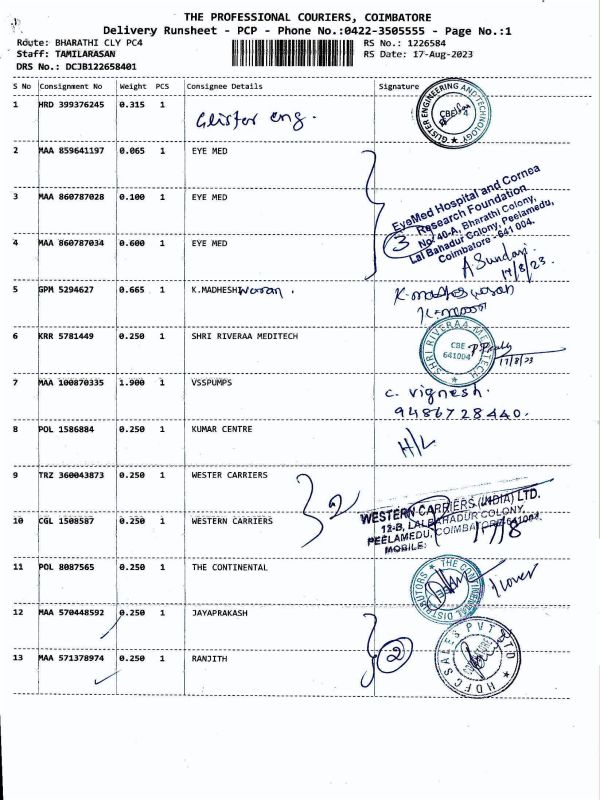 THE PROFESSIONAL COURIERS, COIMBATORE
Delivery Runsheet - PCP - Phone No.:0422-3505555 - Page No.:1
Route: BHARATHI CLY PC4
RS No.: 1226584
Staff: TAMILARASAN
RS Date: 17-Aug-2023
DRS No.: DCJB122658401
S No Consignment No Weight PCS Consignee Details Signature
1 HRD 399376245 0.315 1 Glister eng.
GLISTER ENGINEERING AND TECHNOLOGY
CBE 4
2 MAA 859641197 0.065 1 EYE MED
3 MAA 860787028 0.100 1 EYE MED
4 MAA 860787034 0.600 1 EYE MED
3
EyeMed Hospital and Cornea
Research Foundation
No: 40-A, Bharathi Colony,
Lal Bahadur Colony, Peelamedu,
Coimbatore - 641 004.
A. Sundari
17/8/23.
5 GPM 5294627 0.665 1 K.MADHESHwaran.
6 KRR 5781449 0.250 1 SHRI RIVERAA MEDITECH
SHRI RIVERAA MEDITECH
CBE
641004
17/8/23
7 MAA 100870335 1.900 1 VSSPUMPS
C. Vignesh.
9486728440.
8 POL 1586884 0.250 1 KUMAR CENTRE
H/L
9 TRZ 360043873 0.250 1 WESTER CARRIERS
10 CGL 1508587 0.250 1 WESTERN CARRIERS
2
WESTERN CARRIERS (INDIA) LTD.
12-B, LAL BAHADUR COLONY,
PEELAMEDU, COIMBATORE-641004.
MOBILE:
17/8
11 POL 8087565 0.250 1 THE CONTINENTAL
THE CONTINENTAL DISTRIBUTORS
1 cover
12 MAA 570448592 0.250 1 JAYAPRAKASH
13 MAA 571378974 0.250 1 RANJITH
2
HDFC SALES PVT LTD